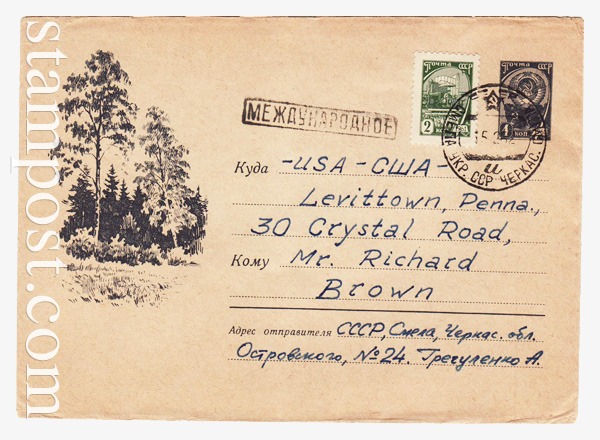 stampost.com
МЕЖДУНАРОДНОЕ
ПОЧТА СССР
2
ПОЧТА СССР
4
КОП
УКР. ССР ЧЕРКАС.
и
Куда -USA-США-
Levittown, Penna.,
30 Crystal Road,
Кому Mr. Richard
Brown
Адрес отправителя СССР, Смела, Черкас. обл.
Островского, №24. Гречуленко А.